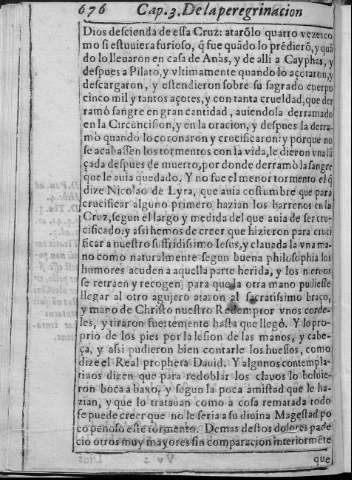 676 Cap. 3. De la peregrinacion
Dios descienda de essa Cruz: atarõlo quatro vezes co
mo si estuuiera furioso, q̃ fue quãdo lo prẽdierõ, y quã
do lo lleuaron en casa de Anas, y de alli a Cayphas, y
despues a Pilato, y vltimamente quando lo açotaron, y
descargaron, y estendieron sobre su sagrado cuerpo
cinco mil y tantos açotes, y con tanta crueldad, que der
ramó sangre en gran cantidad, auiendola derramado
en la Circuncision, y en la oracion, y despues la derra-
mò quando lo coronaron y crucificaron: y porque no
se acabassen los tormentos con la vida, le dieron vna lã
çada despues de muerto, por donde derramò la sangre
que le auia quedado. Y no fue el menor tormento el q̃
dize Nicolao de Lyra, que auia costumbre que para
crucificar alguno primero hazian los barrenos en la
Cruz, segun el largo y medida del que auia de ser cru-
cificado: y assi hemos de creer que hizieron para cruci
ficar a nuestro suffridissimo Iesus, y clauada la vna ma
no como naturalmente segun buena philosophia los
humores acuden a aquella parte herida, y los nieruos
se retraen y recogen; para que la otra mano pudiesse
llegar al otro agujero ataron al sacratissimo braço,
y mano de Christo nuestro Redemptor vnos corde-
les, y tiraron fuertemente hasta que llegò. Y lo pro-
prio de los pies por la lesion de las manos, y cabe-
ça, y assi pudieron bien contarle los huessos, como
dize el Real propheta Dauid. Y algunos contempla-
tiuos dizen que para redoblar los clauos lo boluie-
ron boca abaxo, y segun la poca amistad que le ha-
zian, y que lo tratauan como a cosa rematada todo
se puede creer que no le seria a su diuina Magestad po
co penoso este tormento. Demas destos dolores pade
cio otros muy mayores sin comparacion interiormẽte
que